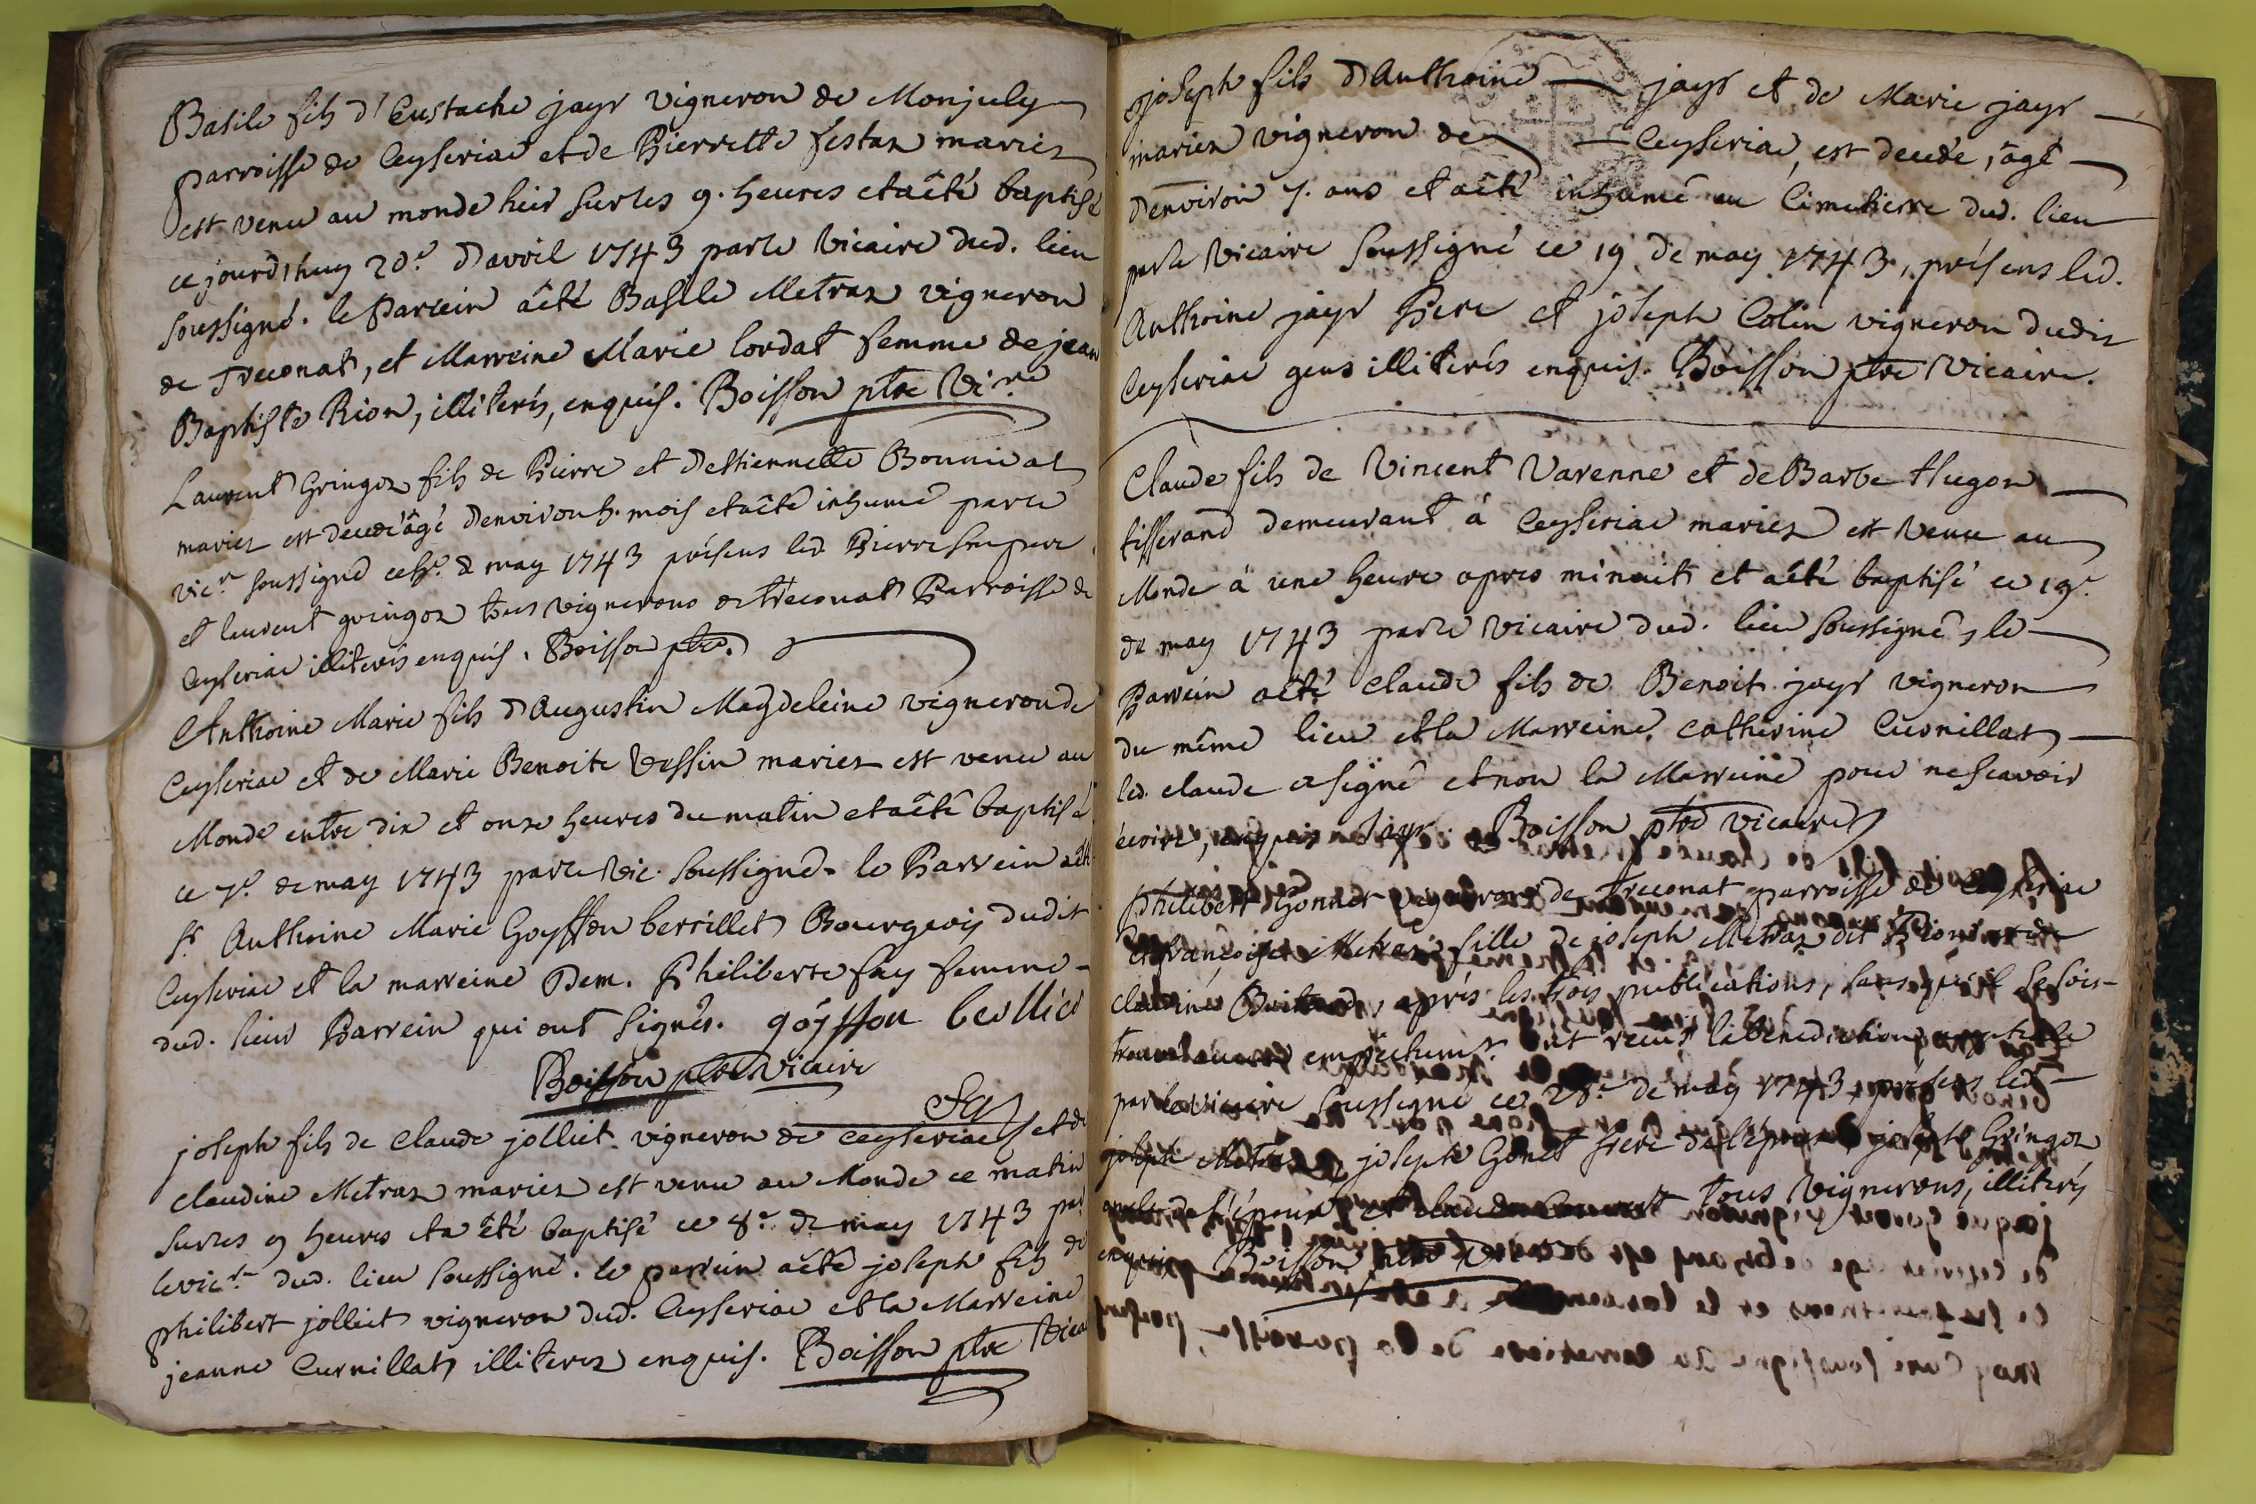 Basile fils d'Eustache jayr vigneron de Monjuly
parroisse de Ceyseriac et de Pierrette festaz mariez
est venu au monde hier sur les 9. heures et a êté baptisé
ce jourd'huy d'avril 1743 par le vicaire dud. lieu
soussigné. le Parrein a êté Basile Metraz vigneron
de Treconat, et Marreine Marie Cordat femme de jean
Baptiste Rion, illiterés, enquis. Boisson ptre Vi.re
Laurent Gringoz fils de Pierre et d'Estiennette Bonnivat
mariez est decedé âgé d'environ mois et a êté inhumé par le
vic.re soussigné ce de may 1743 présens led. Pierre son pere
et laurent gringoz tous vignerons de treconat Parroisse de
Ceyseriac illiterés enquis. Boisson ptre.
Anthoine Marie fils d'Augustin Magdeleine vigneron de
Ceyseriac et de Marie Benoite Vessin mariez est venu au
Monde entre dix et onze heures du matin et a êté baptisé
ce 7.e de may 1743 par le Vic. soussigné. le Parrein a êté
sr. Anthoine Marie Goyffon berrillet Bourgeois dudit
Ceyseriac et la marreine Dem. Philiberte fay femme
dud. sieur Parrein qui ont signés. goyffon
Boisson ptre Vicaire
fay
joseph fils de Claude jolliet vigneron de Ceyseriac et de
claudine Metraz mariez est venu au Monde ce matin
sur les 9 heures et a êté baptisé ce 8.e de may 1743 par
le vic.re dud. lieu soussigné. le parrein a êté joseph fils de
philibert jolliet vigneron dud. Ceyseriac et la Marreine
jeanne Curnillat, illiterez enquis. Boisson ptre
joseph fils d'Anthoine jayr et de Marie jayr
mariez vigneron de Ceyseriac, est decedé, âgé
d'environ 7. ans et a êté inhumé au Cimetierre dud. lieu
par le Vicaire soussigné ce 19 de may 1743, présens led.
Anthoine jayr Pere et joseph Colin vigneron dudit
Ceyseriac gens illiterés enquis. Boisson ptre Vicaire.
Claude fils de Vincent Varenne et de Barbe Hugon
tisserand demeurant à Ceyseriac mariez est venu au
Monde à une heure apres minuit et a êté baptisé ce 19.e
de may 1743 par le Vicaire dud. lieu soussigné, le
Parrein a êté Claude fils de Benoit jayr vigneron
du même lieu et la Marreine Catherine Curnillat
led. claude a signé et non la Marreine pour ne scavoir
écrire, enquis jayr. Boisson ptre vicaire
philibert Gonnet vigneron de Treconat parroisse de Ceyseriac
et françoise Metraz fille de joseph Metraz dit Rion et de
claudine après les trois publications, sans qu'il se soit
trouvé aucun empéchement ont reçus la benediction
par le vicaire soussigné ce de may 1743, présens led.
joseph Metraz, joseph Gonet frere de l'époux, joseph Gringoz
de l'époux et claude tous Vignerons, illiterés
enquis. Boisson ptre